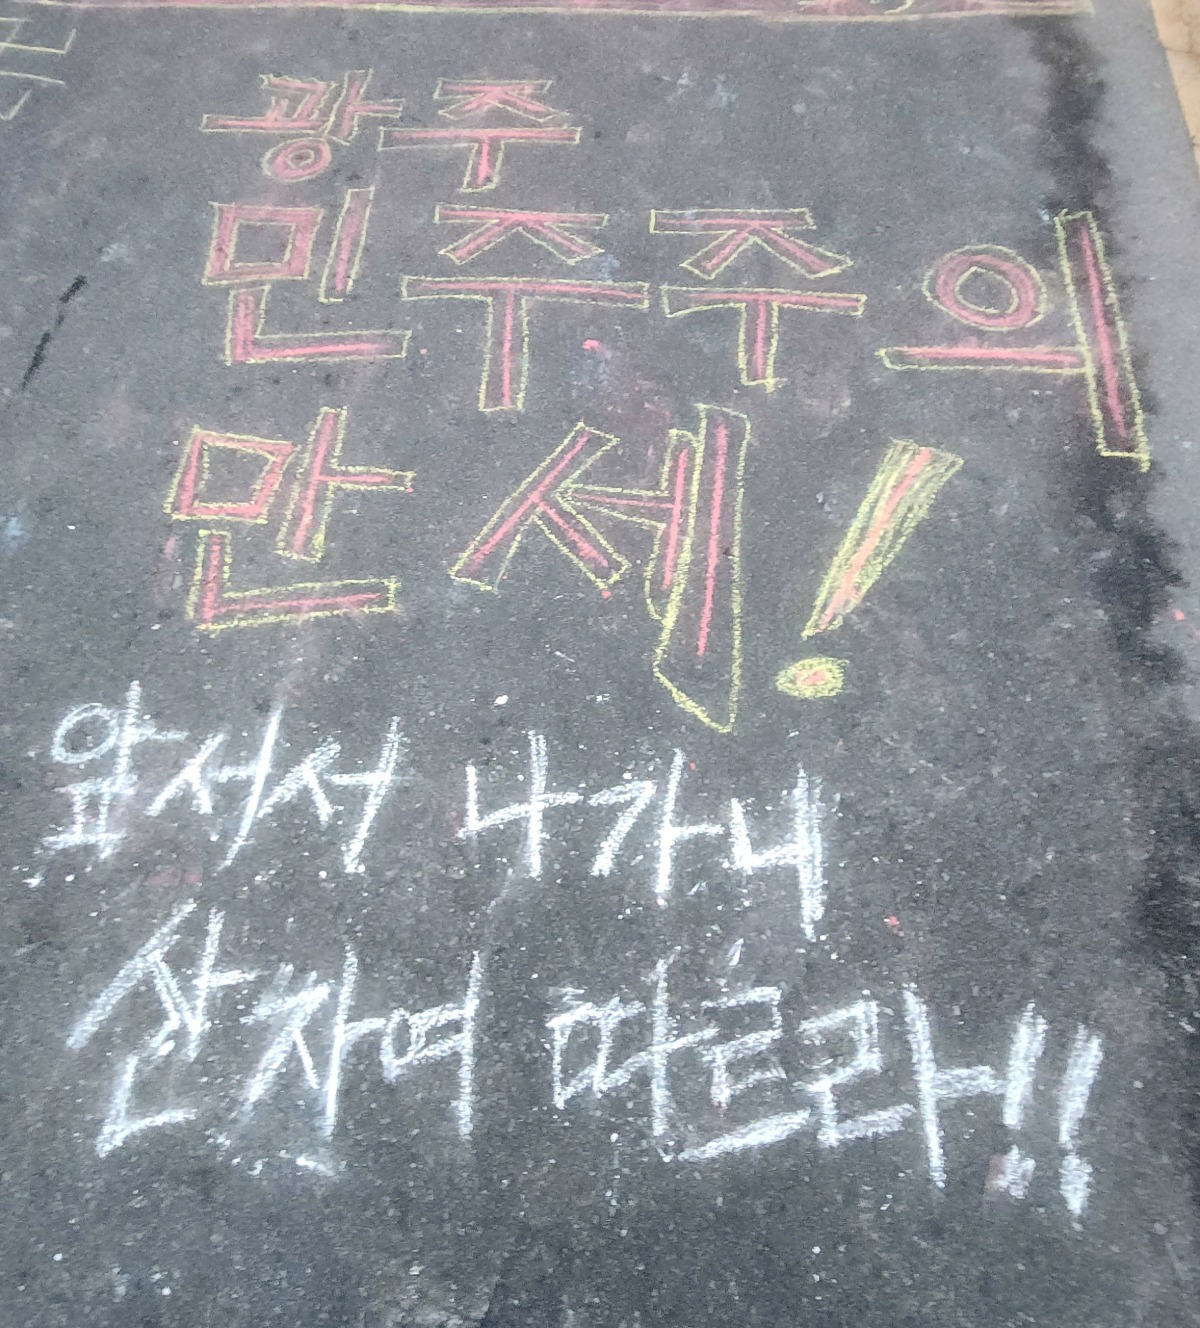 광주
민주주의
만세!
앞서서 나가니
산자여 따르라!!